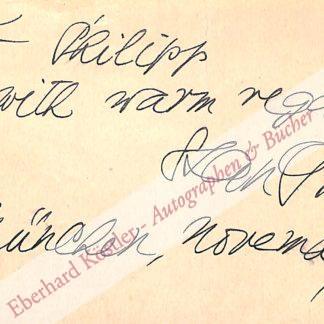 Philipp
with warm rega
München, Novem
Eberhard Köstler - Autographen & Bücher